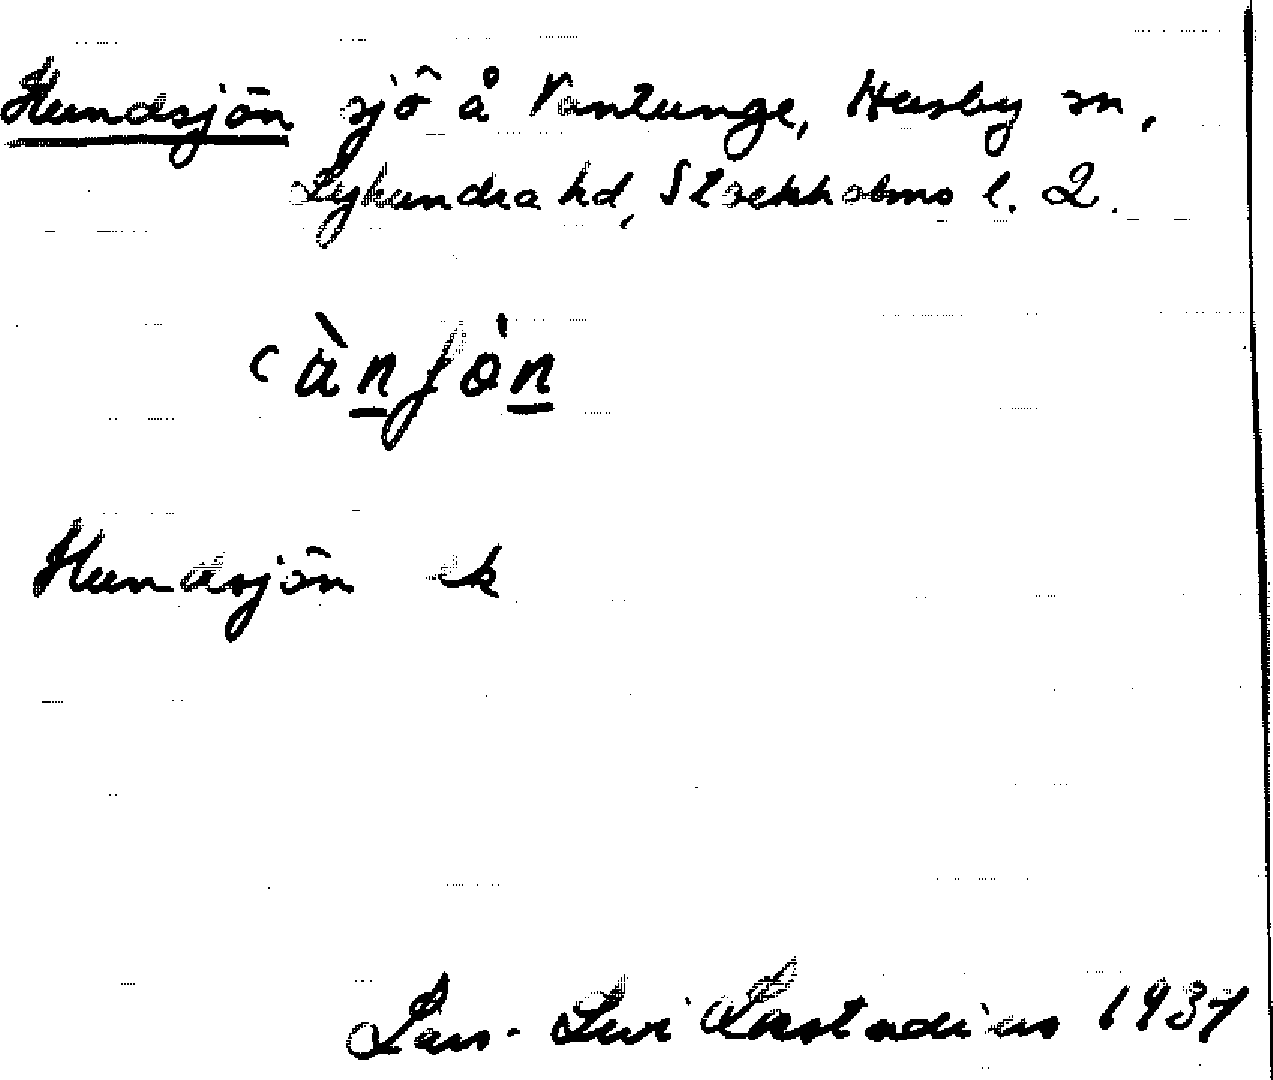 Hundsjön sjö å Vantunge, Husby sn,
Lyhundra hd, Stockholms l. 2.
Hundsjön ek
Lars-Levi Læstadius 1937